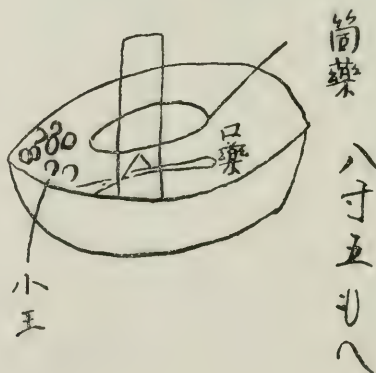 筒藥 八寸五もへ
口藥
小玉